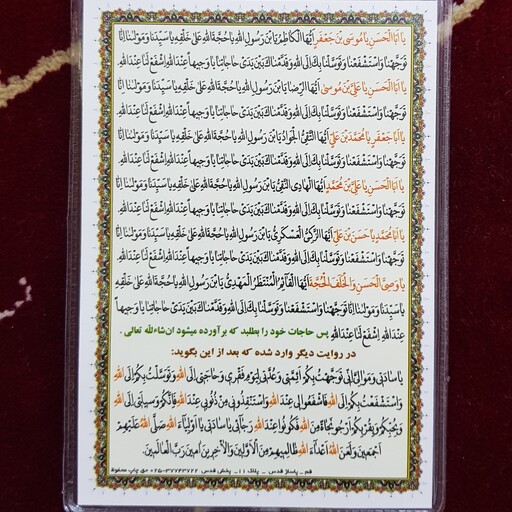 یا اَبَا الْحَسَنِ یا مُوسَی بْنَ جَعْفَرٍ اَیُّهَا الْکاظِمُ یَا بْنَ رَسُولِ اللهِ یا حُجَّةَ اللهِ عَلیٰ خَلْقِهِ یا سَیِّدَنا وَ مَوْلٰینا اِنّا
تَوَجَّهْنا وَ اسْتَشْفَعْنا وَ تَوَسَّلْنا بِکَ اِلَی اللهِ وَ قَدَّمْناکَ بَیْنَ یَدَیْ حاجاتِنا یا وَجیهاً عِنْدَ اللهِ اِشْفَعْ لَنا عِنْدَ اللهِ.
یا اَبَا الْحَسَنِ یا عَلِیَّ بْنَ مُوسیٰ اَیُّهَا الرِّضا یَا بْنَ رَسُولِ اللهِ یا حُجَّةَ اللهِ عَلیٰ خَلْقِهِ یا سَیِّدَنا وَ مَوْلٰینا اِنّا
تَوَجَّهْنا وَ اسْتَشْفَعْنا وَ تَوَسَّلْنا بِکَ اِلَی اللهِ وَ قَدَّمْناکَ بَیْنَ یَدَیْ حاجاتِنا یا وَجیهاً عِنْدَ اللهِ اِشْفَعْ لَنا عِنْدَ اللهِ.
یا اَبا جَعْفَرٍ یا مُحَمَّدَ بْنَ عَلِیٍّ اَیُّهَا التَّقِیُّ الْجَوادُ یَا بْنَ رَسُولِ اللهِ یا حُجَّةَ اللهِ عَلیٰ خَلْقِهِ یا سَیِّدَنا وَ مَوْلٰینا اِنّا
تَوَجَّهْنا وَ اسْتَشْفَعْنا وَ تَوَسَّلْنا بِکَ اِلَی اللهِ وَ قَدَّمْناکَ بَیْنَ یَدَیْ حاجاتِنا یا وَجیهاً عِنْدَ اللهِ اِشْفَعْ لَنا عِنْدَ اللهِ.
یا اَبَا الْحَسَنِ یا عَلِیَّ بْنَ مُحَمَّدٍ اَیُّهَا الْهادِی النَّقِیُّ یَا بْنَ رَسُولِ اللهِ یا حُجَّةَ اللهِ عَلیٰ خَلْقِهِ یا سَیِّدَنا وَ مَوْلٰینا اِنّا
تَوَجَّهْنا وَ اسْتَشْفَعْنا وَ تَوَسَّلْنا بِکَ اِلَی اللهِ وَ قَدَّمْناکَ بَیْنَ یَدَیْ حاجاتِنا یا وَجیهاً عِنْدَ اللهِ اِشْفَعْ لَنا عِنْدَ اللهِ.
یا اَبا مُحَمَّدٍ یا حَسَنَ بْنَ عَلِیٍّ اَیُّهَا الزَّکِیُّ الْعَسْکَرِیُّ یَا بْنَ رَسُولِ اللهِ یا حُجَّةَ اللهِ عَلیٰ خَلْقِهِ یا سَیِّدَنا وَ مَوْلٰینا اِنّا
تَوَجَّهْنا وَ اسْتَشْفَعْنا وَ تَوَسَّلْنا بِکَ اِلَی اللهِ وَ قَدَّمْناکَ بَیْنَ یَدَیْ حاجاتِنا یا وَجیهاً عِنْدَ اللهِ اِشْفَعْ لَنا عِنْدَ اللهِ.
یا وَصِیَّ الْحَسَنِ وَ الْخَلَفَ الْحُجَّةَ اَیُّهَا الْقائِمُ الْمُنْتَظَرُ الْمَهْدِیُّ یَا بْنَ رَسُولِ اللهِ یا حُجَّةَ اللهِ عَلیٰ خَلْقِهِ
یا سَیِّدَنا وَ مَوْلٰینا اِنّا تَوَجَّهْنا وَ اسْتَشْفَعْنا وَ تَوَسَّلْنا بِکَ اِلَی اللهِ وَ قَدَّمْناکَ بَیْنَ یَدَیْ حاجاتِنا یا وَجیهاً
عِنْدَ اللهِ اِشْفَعْ لَنا عِنْدَ اللهِ پس حاجات خود را بطلبد که برآورده میشود ان‌شاءلله تعالی .
در روایت دیگر وارد شده که بعد از این بگوید:
یا سادَتی وَ مَوالِیَّ اِنّی تَوَجَّهْتُ بِکُمْ اَئِمَّتی وَ عُدَّتی لِیَوْمِ فَقْری وَ حاجَتی اِلَی اللهِ وَ تَوَسَّلْتُ بِکُمْ اِلَی اللهِ
وَ اسْتَشْفَعْتُ بِکُمْ اِلَی اللهِ فَاشْفَعُوا لی عِنْدَ اللهِ وَ اسْتَنْقِذُونی مِنْ ذُنُوبی عِنْدَ اللهِ فَاِنَّکُمْ وَسیلَتی اِلَی اللهِ
وَ بِحُبِّکُمْ وَ بِقُرْبِکُمْ اَرْجُو نَجاةً مِنَ اللهِ فَکُونُوا عِنْدَ اللهِ رَجائی یا سادَتی یا اَوْلِیاءَ اللهِ صَلَّی اللهُ عَلَیْهِمْ
اَجْمَعینَ وَ لَعَنَ اللهُ اَعْداءَ اللهِ ظالِمیهِمْ مِنَ الْاَوَّلینَ وَ الْاٰخِرینَ اٰمینَ رَبَّ الْعالَمینَ.
قم - پاساژ قدس - پلاک ۱۱ - پخش قدس ۳۷۷۴۳۷۲۲-۰۲۵ حق چاپ محفوظ